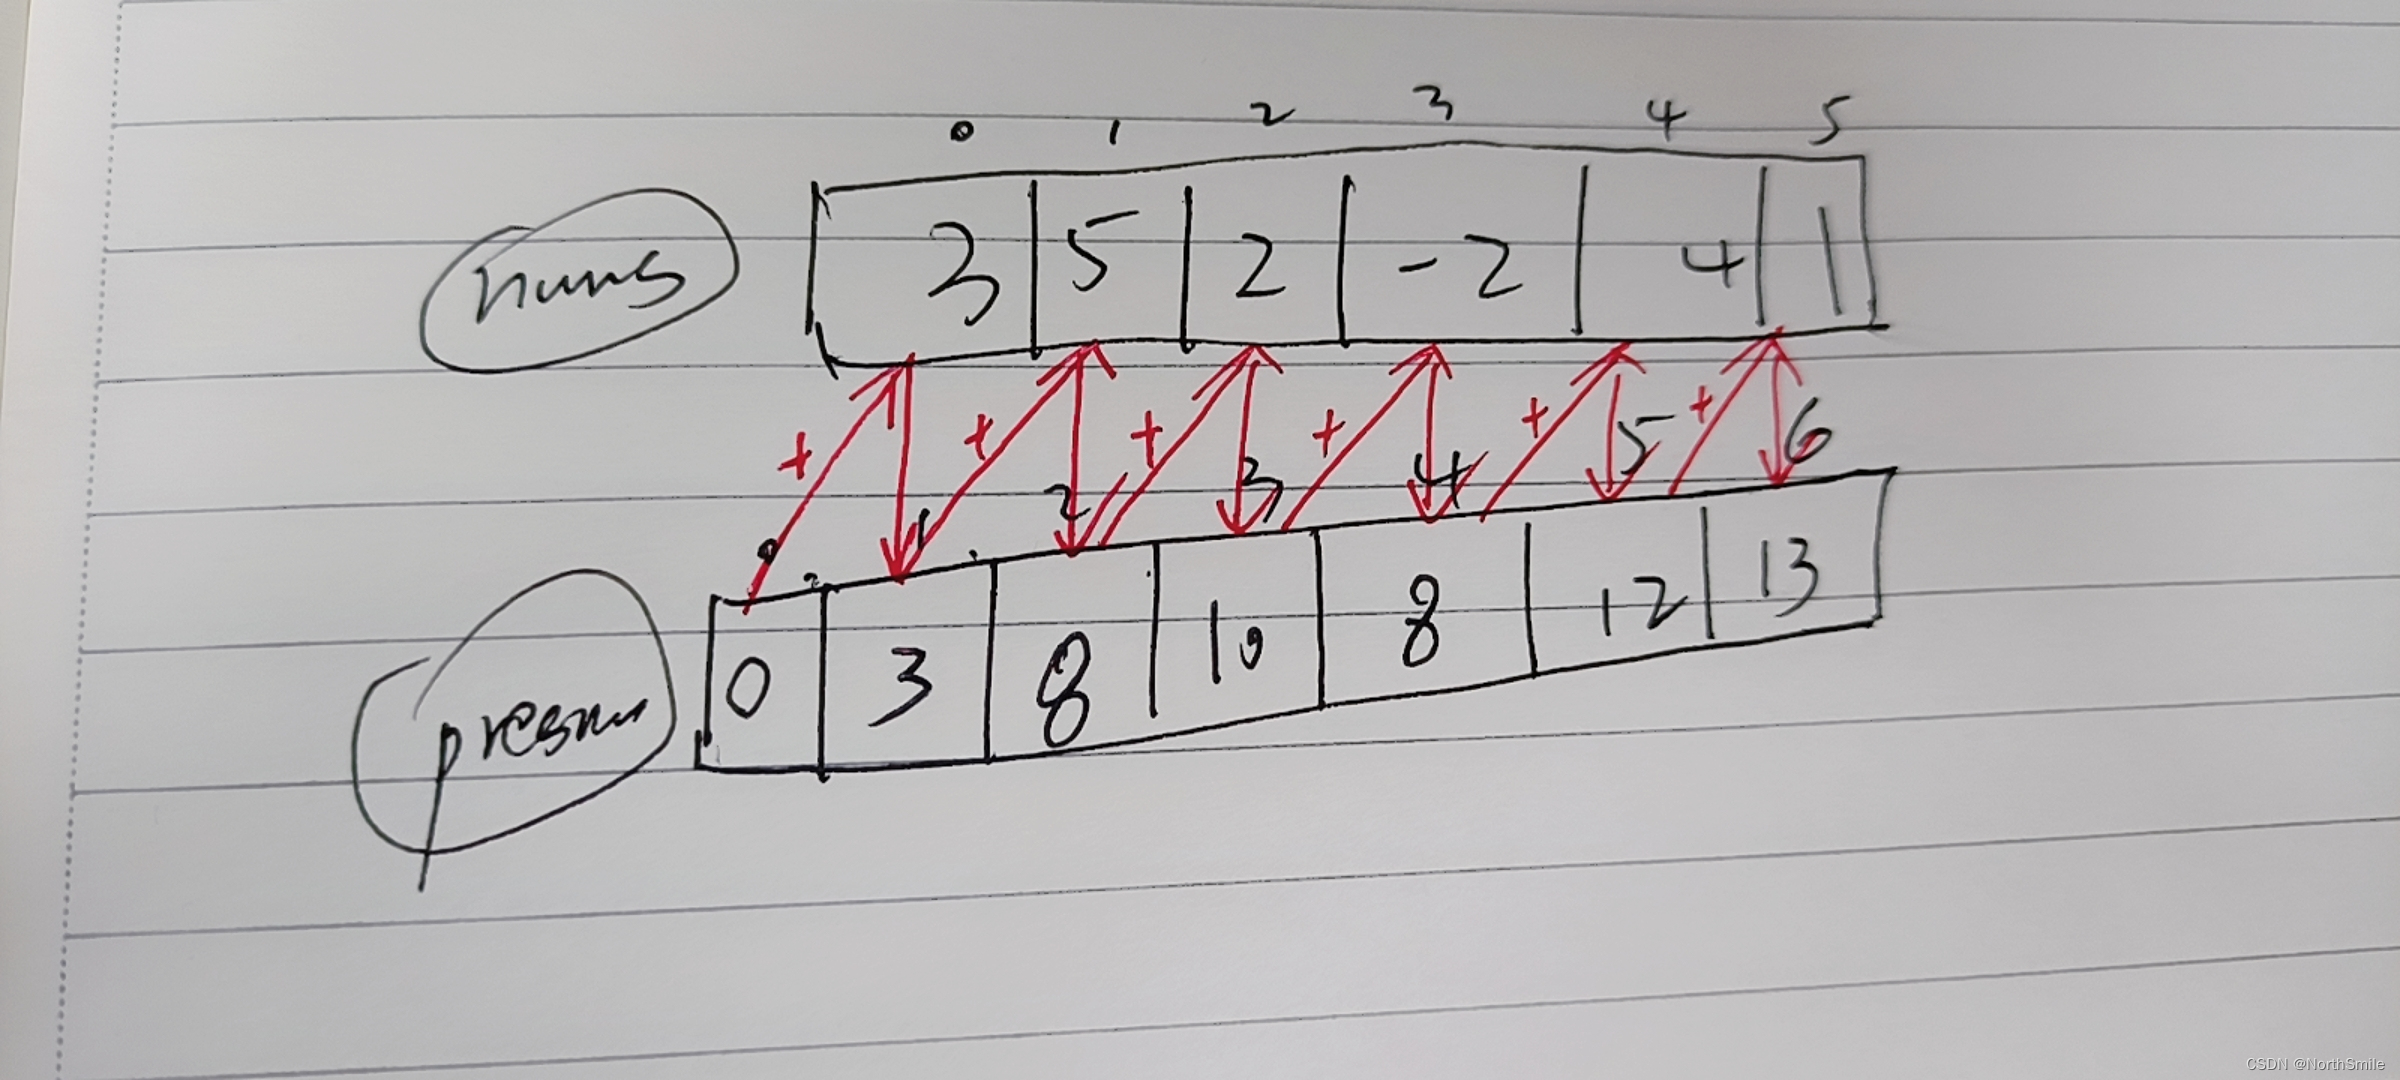 0 1 2 3 4 5
nums 3 5 2 -2 4 1
+ + + + + +
0 1 2 3 4 5 6
presum 0 3 8 10 8 12 13
CSDN @NorthSmile